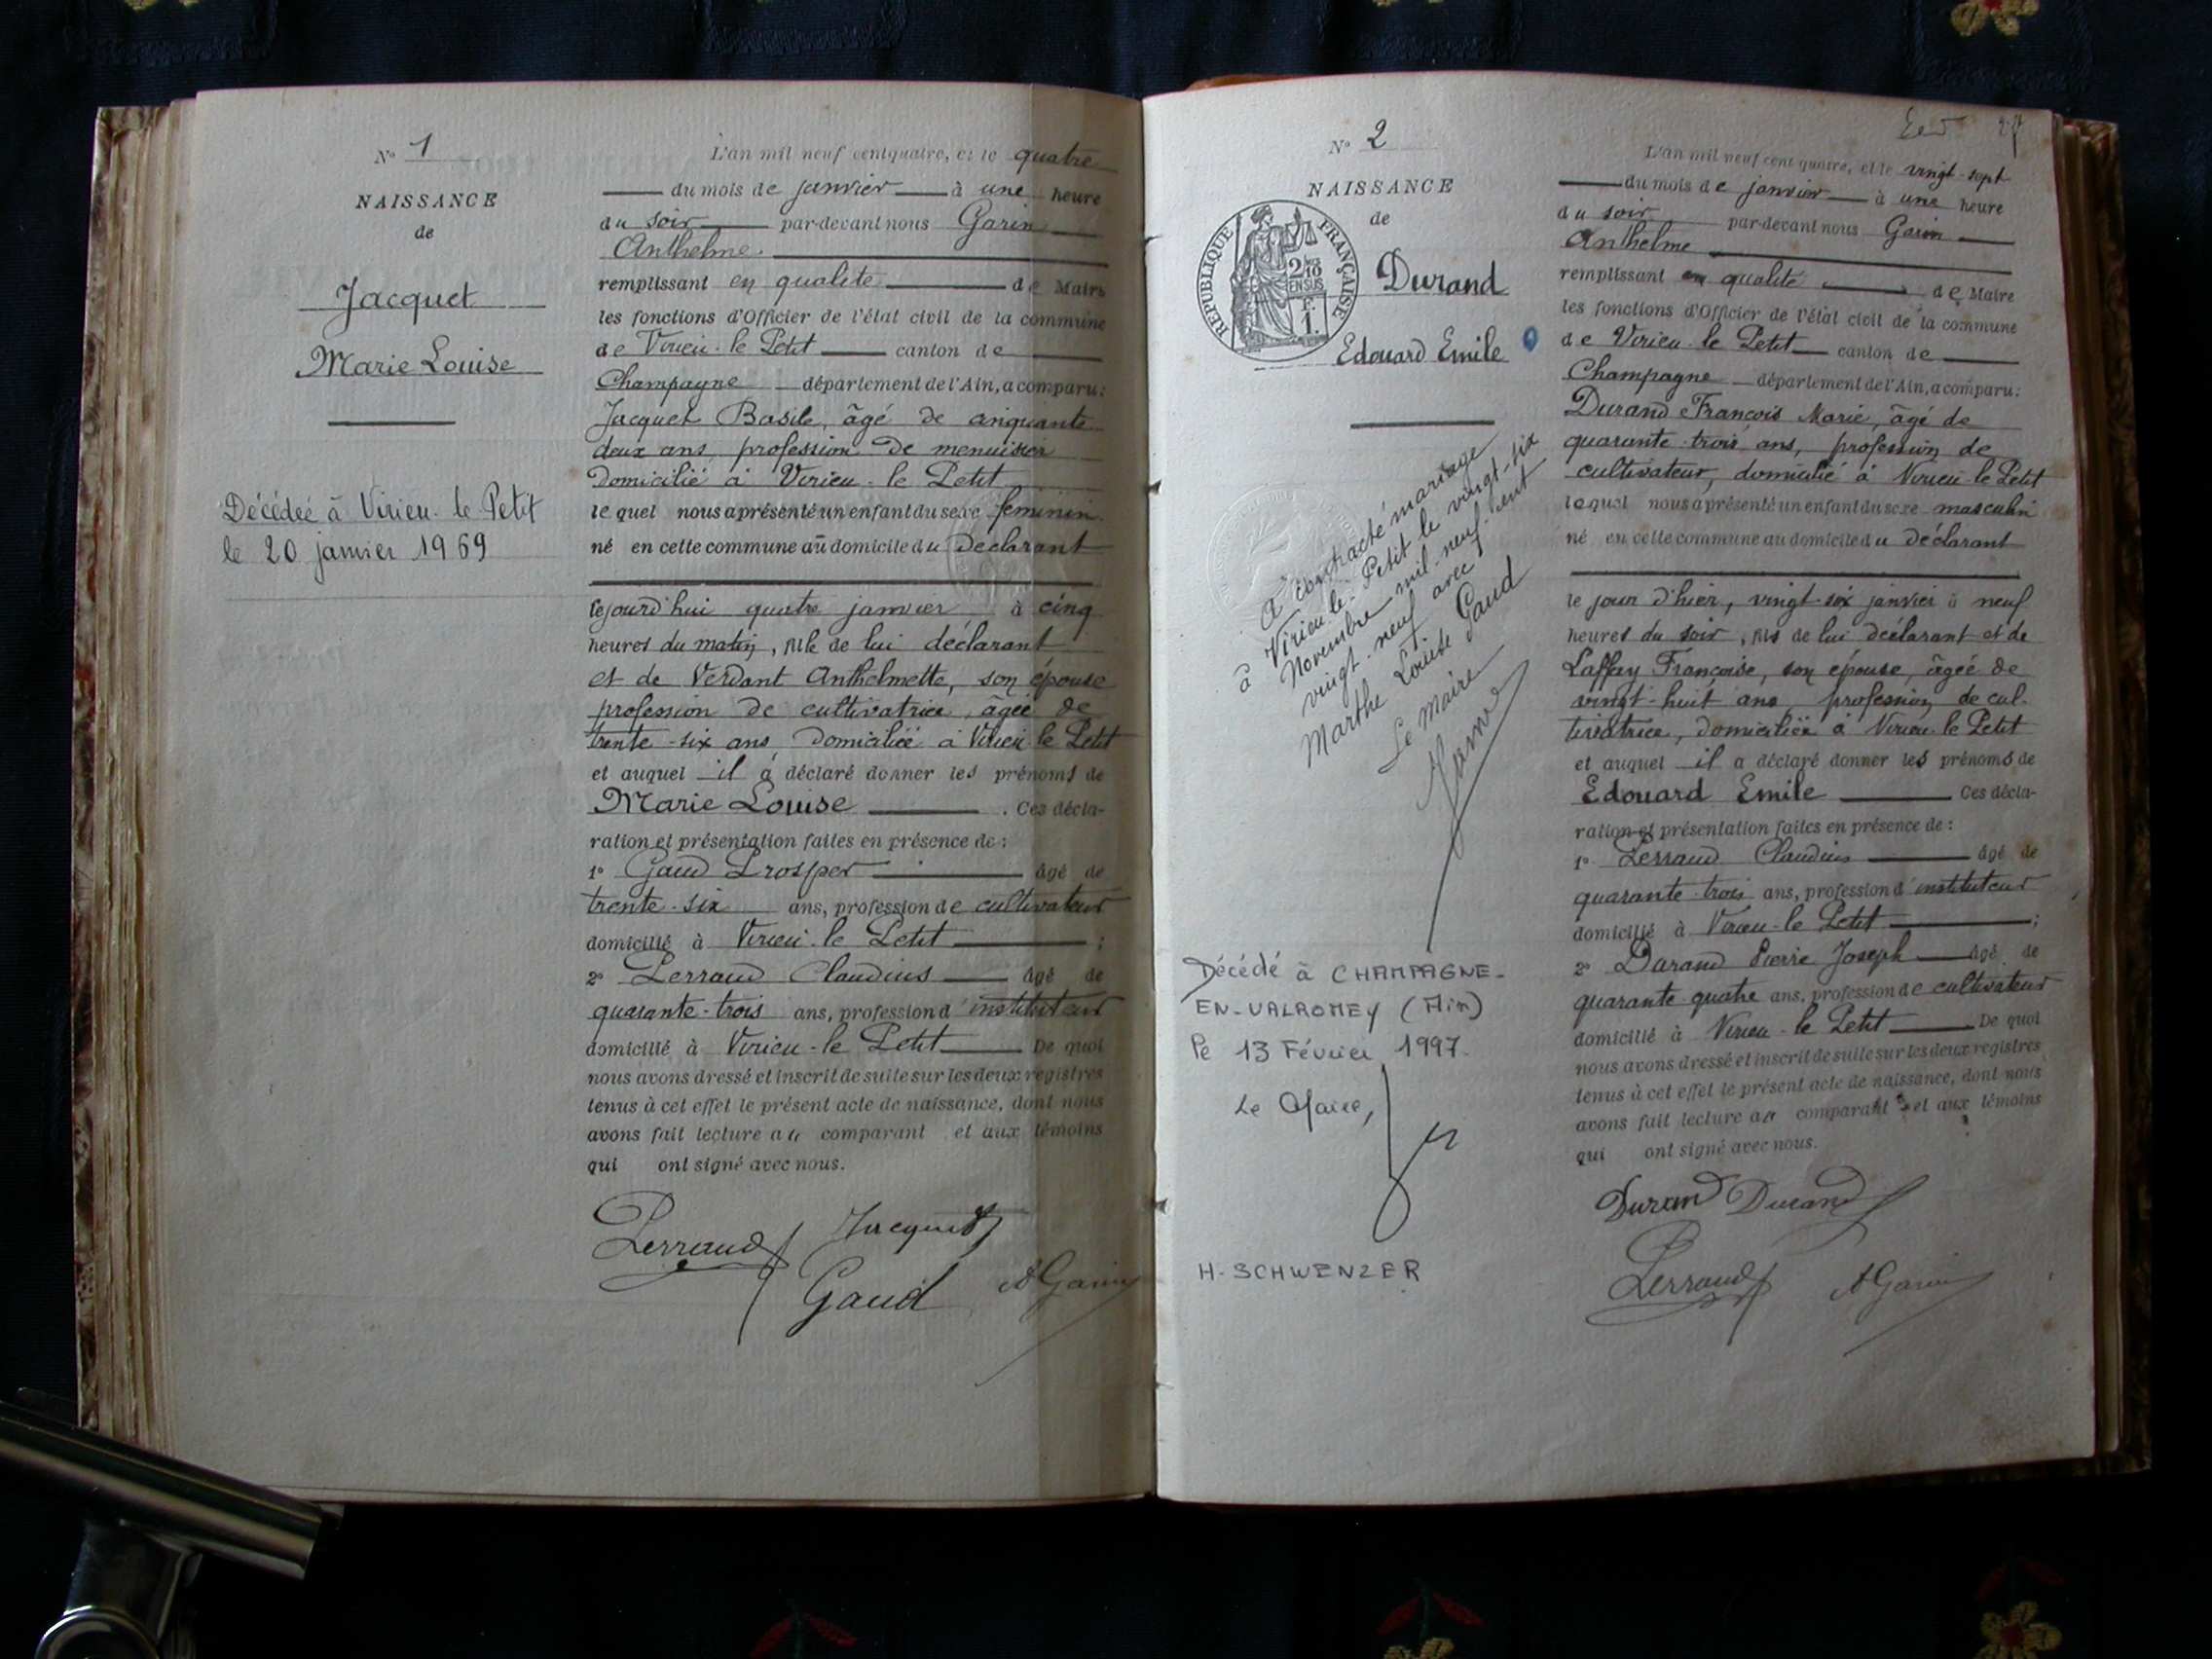 Nº 1
NAISSANCE
de
Jacquet
Marie Louise
Décédée à Virieu-le-Petit
le 20 janvier 1969
L'an mil neuf cent quatre, et le quatre
du mois de janvier à une heure
du soir par-devant nous Garin
Anthelme.
remplissant en qualité de Maire
les fonctions d'Officier de l'état civil de la commune
de Virieu-le Petit canton de
Champagne département de l'Ain, a comparu:
Jacquet Basile, âgé de cinquante
deux ans, profession de menuisier
domicilié à Virieu-le Petit
lequel nous a présenté un enfant du sexe féminin
né en cette commune au domicile du déclarant
cejourd'hui quatre janvier à cinq
heures du matin, fille de lui déclarant
et de Verdant Anthelmette, son épouse
profession de cultivatrice, âgée de
trente-six ans, domiciliée à Virieu le Petit
et auquel il a déclaré donner les prénoms de
Marie Louise . Ces décla-
ration et présentation faites en présence de :
1º Gaud Prosper âgé de
trente-six ans, profession de cultivateur
domicilié à Virieu-le Petit ;
2º Perraud Claudius âgé de
quarante-trois ans, profession d'instituteur
domicilié à Virieu-le Petit De quoi
nous avons dressé et inscrit de suite sur les deux registres
tenus à cet effet le présent acte de naissance, dont nous
avons fait lecture au comparant et aux témoins
qui ont signé avec nous.
Perraud Jacquet
Gaud A Garin
27
Nº 2
NAISSANCE
de
REPUBLIQUE FRANÇAISE
2/10
EN SUS
F.
1.
Durand
Edouard Emile
A contracté mariage
à Virieu-le-Petit le vingt-six
Novembre mil-neuf-cent
vingt-neuf avec
Marthe Louise Gaud
Le Maire
Décédé à CHAMPAGNE-
EN-VALROMEY (Ain)
le 13 Février 1997.
Le Maire,
H-SCHWENZER
L'an mil neuf cent quatre, et le vingt-sept
du mois de janvier à une heure
du soir par-devant nous Garin
Anthelme
remplissant en qualité de Maire
les fonctions d'Officier de l'état civil de la commune
de Virieu-le Petit canton de
Champagne département de l'Ain, a comparu:
Durand François Marie, âgé de
quarante-trois ans, profession de
cultivateur, domicilié à Virieu-le Petit
lequel nous a présenté un enfant du sexe masculin
né en cette commune au domicile du déclarant
le jour d'hier, vingt-six janvier à neuf
heures du soir, fils de lui déclarant et de
Laffay Françoise, son épouse, âgée de
vingt-huit ans, profession de cul-
tivatrice, domiciliée à Virieu-le Petit
et auquel il a déclaré donner les prénoms de
Edouard Emile Ces décla-
ration et présentation faites en présence de :
1º Perraud Claudius âgé de
quarante-trois ans, profession d'instituteur
domicilié à Virieu-le Petit ;
2º Durand Pierre Joseph âgé de
quarante quatre ans, profession de cultivateur
domicilié à Virieu-le Petit De quoi
nous avons dressé et inscrit de suite sur les deux registres
tenus à cet effet le présent acte de naissance, dont nous
avons fait lecture au comparant et aux témoins
qui ont signé avec nous.
Durand Durand
Perraud A Garin